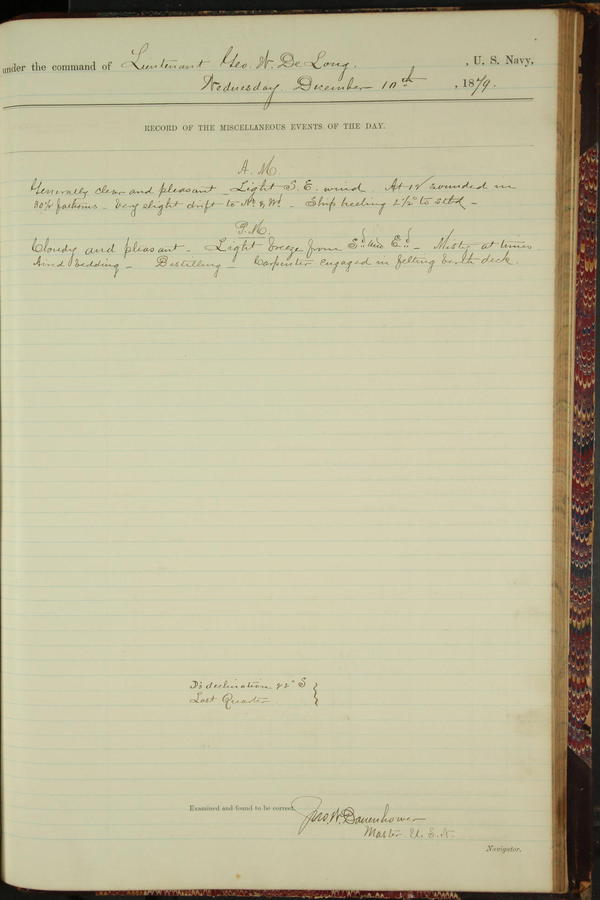 under the command of Lieutenant Geo. W. De Long. , U. S. Navy,
Wednesday, December 10th , 1879.
RECORD OF THE MISCELLANEOUS EVENTS OF THE DAY.
A. M.
Generally clear and pleasant _ Light S. E. wind. At 12 sounded in
30½ fathoms _ Very slight drift to Nd & Wd _ Ship heeling 2½° to stbd _
P. M.
Cloudy and pleasant _ Light breeze from Sd and Ed _ Misty at times
Aired bedding _ Distilling _ Carpenter engaged in felting berth deck.
declination 22° S
Last Quarter
Examined and found to be correct.
Jno. W. Danenhower
Master U. S. N.
Navigator.